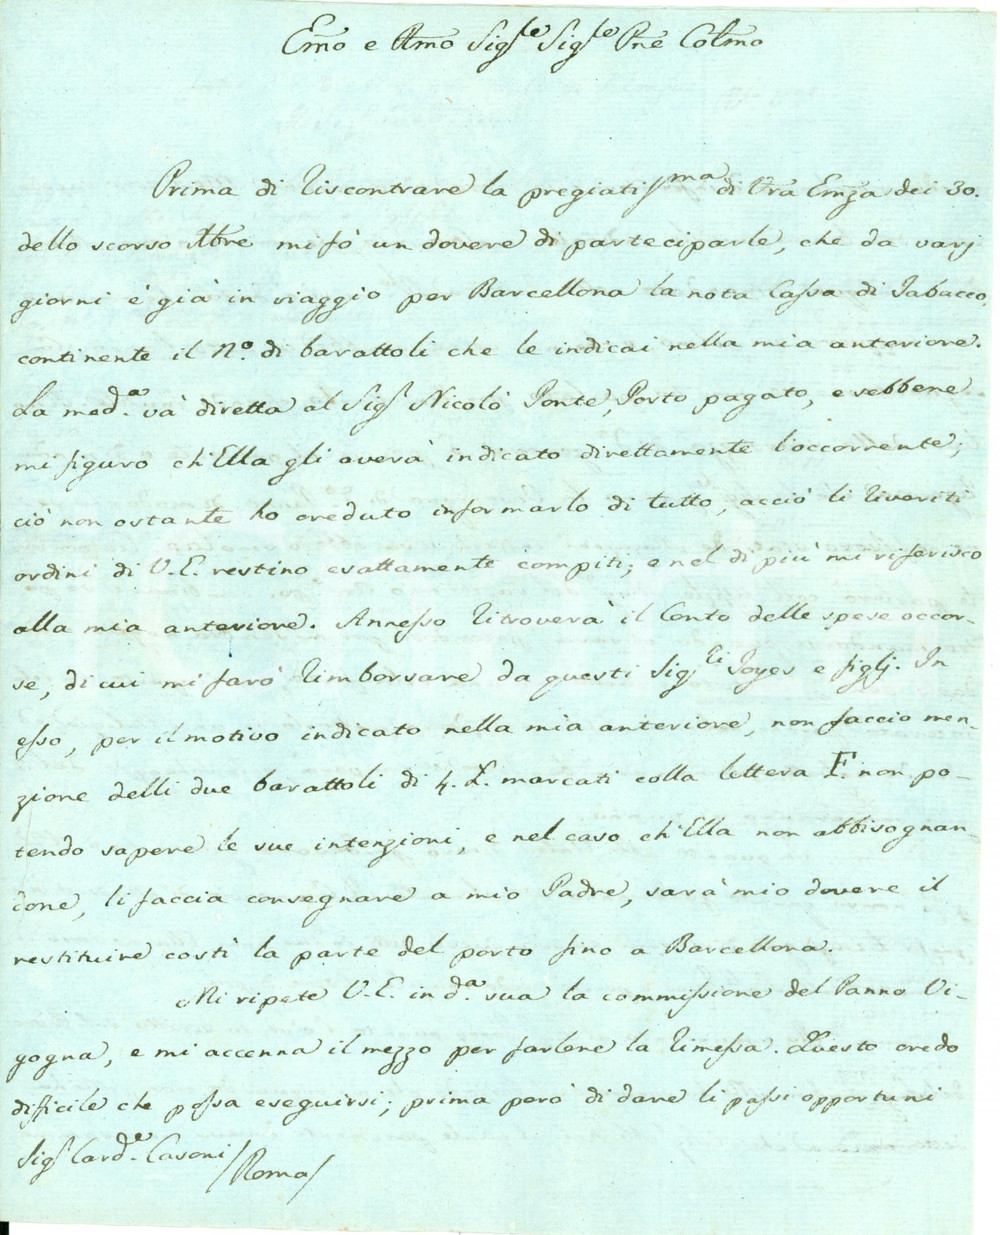 Emo e Rmo Sigre Sigre Pne Colmo
Prima di riscontrare la pregiatissma di Vra Emza dei 30.
dello scorso 8bre mi fò un dovere di parteciparle, che da varj
giorni è già in viaggio per Barcellona la nota Cassa di Tabacco,
continente il No. di barattoli che le indicai nella mia anteriore.
La meda. và diretta al Sigr Nicolò Ponte, Porto pagato, e sebbene
mi figuro ch'Ella gli averà indicato direttamente l'occorrente;
ciò non ostante ho creduto informarlo di tutto, acciò li riveriti
ordini di V.E. restino esattamente compiti; e nel di più mi riferisco
alla mia anteriore. Annesso ritroverà il Conto delle spese occor-
se, di cui mi farò rimborsare da questi Sigri Joyes e figlj. In
esso, per il motivo indicato nella mia anteriore, non faccio men-
zione delli due barattoli di 4. £. marcati colla lettera F. non po-
tendo sapere le sue intenzioni, e nel caso ch'Ella non abbisognan-
done, li faccia consegnare a mio Padre, sarà mio dovere il
restituire costì la parte del porto fino a Barcellona.
Mi ripete V.E. in da. sua la commissione del Panno Vi-
gogna, e mi accenna il mezzo per farlene la rimessa. Questo credo
difficile che possa eseguirsi; prima però di dare li passi opportuni
Sigr Carde. Casoni /Roma/